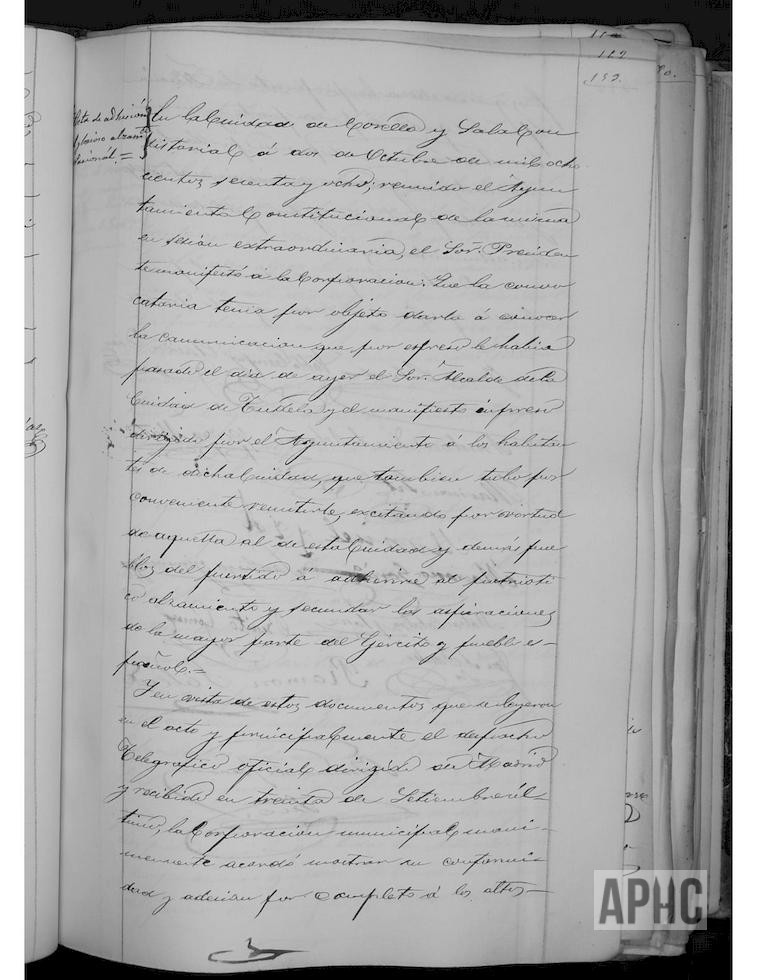 112
152.
Acta de adhesión
al glorioso alzamto
Nacional. =
En la Ciudad de Corella y Sala Con
sistorial á dos de Octubre de mil ocho
cientos sesenta y ocho; reunido el Ayun
tamiento Constitucional de la misma
en sesion extraordinaria, el Sor. Presiden
te manifestó á la Corporacion: Que la convo
catoria tenia por objeto darla á conocer
la comunicacion que por espreso le habia
pasado el dia de ayer el Sor. Alcalde de la
Ciudad de Tudela y el manifiesto impreso
dirigido por el Ayuntamiento á los habitan
tes de dicha Ciudad, que tambien tubo por
conveniente remitirle, excitando por virtud
de aquella al de esta Ciudad y demás pue
blos del partido á adherirse al patrioti
co alzamiento y secundar las aspiraciones
de la mayor parte del Ejército y pueblo es-
pañol. =
Y en vista de estos documentos que se leyeron
en el acto y principalmente el despacho
Telegrafico oficial dirigido de Madrid
y recibido en treinta de Setiembre úl-
timo, la Corporacion municipal unani-
memente acordó mostrar su conformi-
dad y adesion por completo á los altos-
APHC